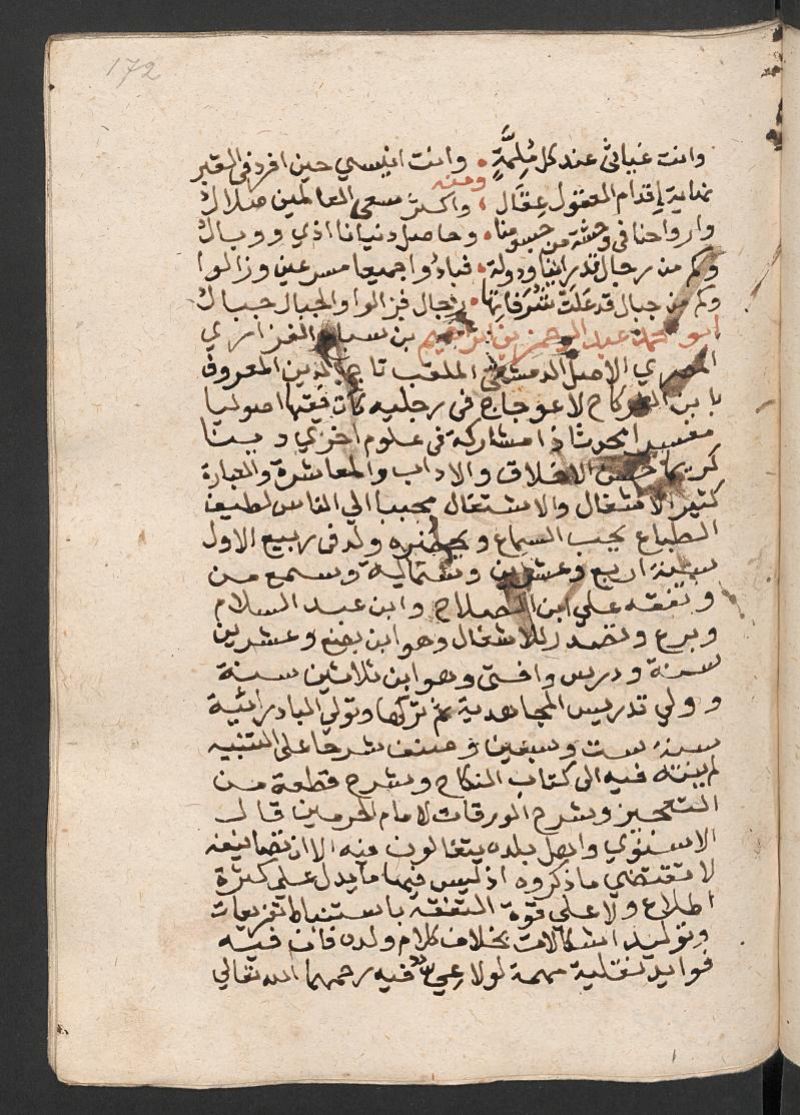 172
وانت غياثي عند كل مُلِمَّةٍ • وانت انيسي حين افرد في القبر
ومنه
نهاية إقدام العقول عِقَال • واكثر سعي العالمين ضلال
وارواحنا في وحشة من جسومنا • وحاصل دنيانا اذي ووبال
وكم من رجال قد راينا ودولة • فبادُوا جميعا مسرعين وزالوا
وكم من جبال قد عَلَت شُرُفاتِها • رجال فزالوا والجبال جبال
ابو محمد عبد الرحمن بن ابرهيم بن سباع الفزاري
المصري الاصل الدمشقي الملقب تاج الدين المعروف
بابن الفركاح لاعوجاج في رجليه كان فقيها اصوليا
مفسرا محدثا ذا مشاركة في علوم اخري دينا
كريما حسن الاخلاق والاداب والمعاشرة والعبارة
كثير الاشغال والاشتغال محببا الي الناس لطيف
الطباع يحب السماع ويحضره ولد في ربيع الاول
سنة اربع وعشرين وستماية وسمع من
وتفقه علي ابن الصلاح وابن عبد السلام
وبرع وتصدر للاشغال وهو ابن بضع وعشرين
سنة ودرس وافتي وهو ابن ثلاثين سنة
وولي تدريس المجاهدية ثم تركها وتولي البادرائية
سنة ست وسبعين وصنف شرحا علي التنبيه
لم ينته فيه الى كتاب النكاح وشرح قطعة من
التعجيز وشرح الورقات لامام الحرمين قال
الاسنوي واهل بلده يتغالون فيه الا ان تصانيفه
لا تقتضي ما ذكروه اذ ليس فيها ما يدل علي كثرة
اطلاع ولا علي قوة التفقه باستنباط تفريعات
وتوليد اشكالات بخلاف كلام ولده فان فيه
فوايد نقلية مهمة لولا عي فيه رحمهما الله تعالي